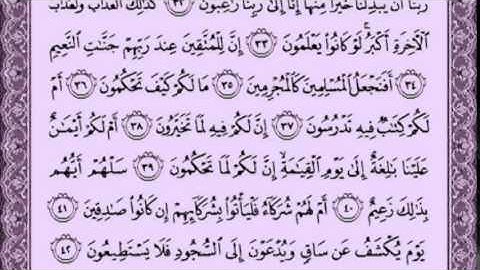 رَبُّنَآ أَن يُبۡدِلَنَا خَيۡرٗا مِّنۡهَآ إِنَّآ إِلَىٰ رَبِّنَا رَٰغِبُونَ ٣٢ كَذَٰلِكَ ٱلۡعَذَابُۖ وَلَعَذَابُ
ٱلۡأٓخِرَةِ أَكۡبَرُۚ لَوۡ كَانُواْ يَعۡلَمُونَ ٣٣ إِنَّ لِلۡمُتَّقِينَ عِندَ رَبِّهِمۡ جَنَّٰتِ ٱلنَّعِيمِ
٣٤ أَفَنَجۡعَلُ ٱلۡمُسۡلِمِينَ كَٱلۡمُجۡرِمِينَ ٣٥ مَا لَكُمۡ كَيۡفَ تَحۡكُمُونَ ٣٦ أَمۡ
لَكُمۡ كِتَٰبٞ فِيهِ تَدۡرُسُونَ ٣٧ إِنَّ لَكُمۡ فِيهِ لَمَا تَخَيَّرُونَ ٣٨ أَمۡ لَكُمۡ أَيۡمَٰنٌ
عَلَيۡنَا بَٰلِغَةٌ إِلَىٰ يَوۡمِ ٱلۡقِيَٰمَةِ إِنَّ لَكُمۡ لَمَا تَحۡكُمُونَ ٣٩ سَلۡهُمۡ أَيُّهُم
بِذَٰلِكَ زَعِيمٌ ٤٠ أَمۡ لَهُمۡ شُرَكَآءُ فَلۡيَأۡتُواْ بِشُرَكَآئِهِمۡ إِن كَانُواْ صَٰدِقِينَ ٤١
يَوۡمَ يُكۡشَفُ عَن سَاقٖ وَيُدۡعَوۡنَ إِلَى ٱلسُّجُودِ فَلَا يَسۡتَطِيعُونَ ٤٢